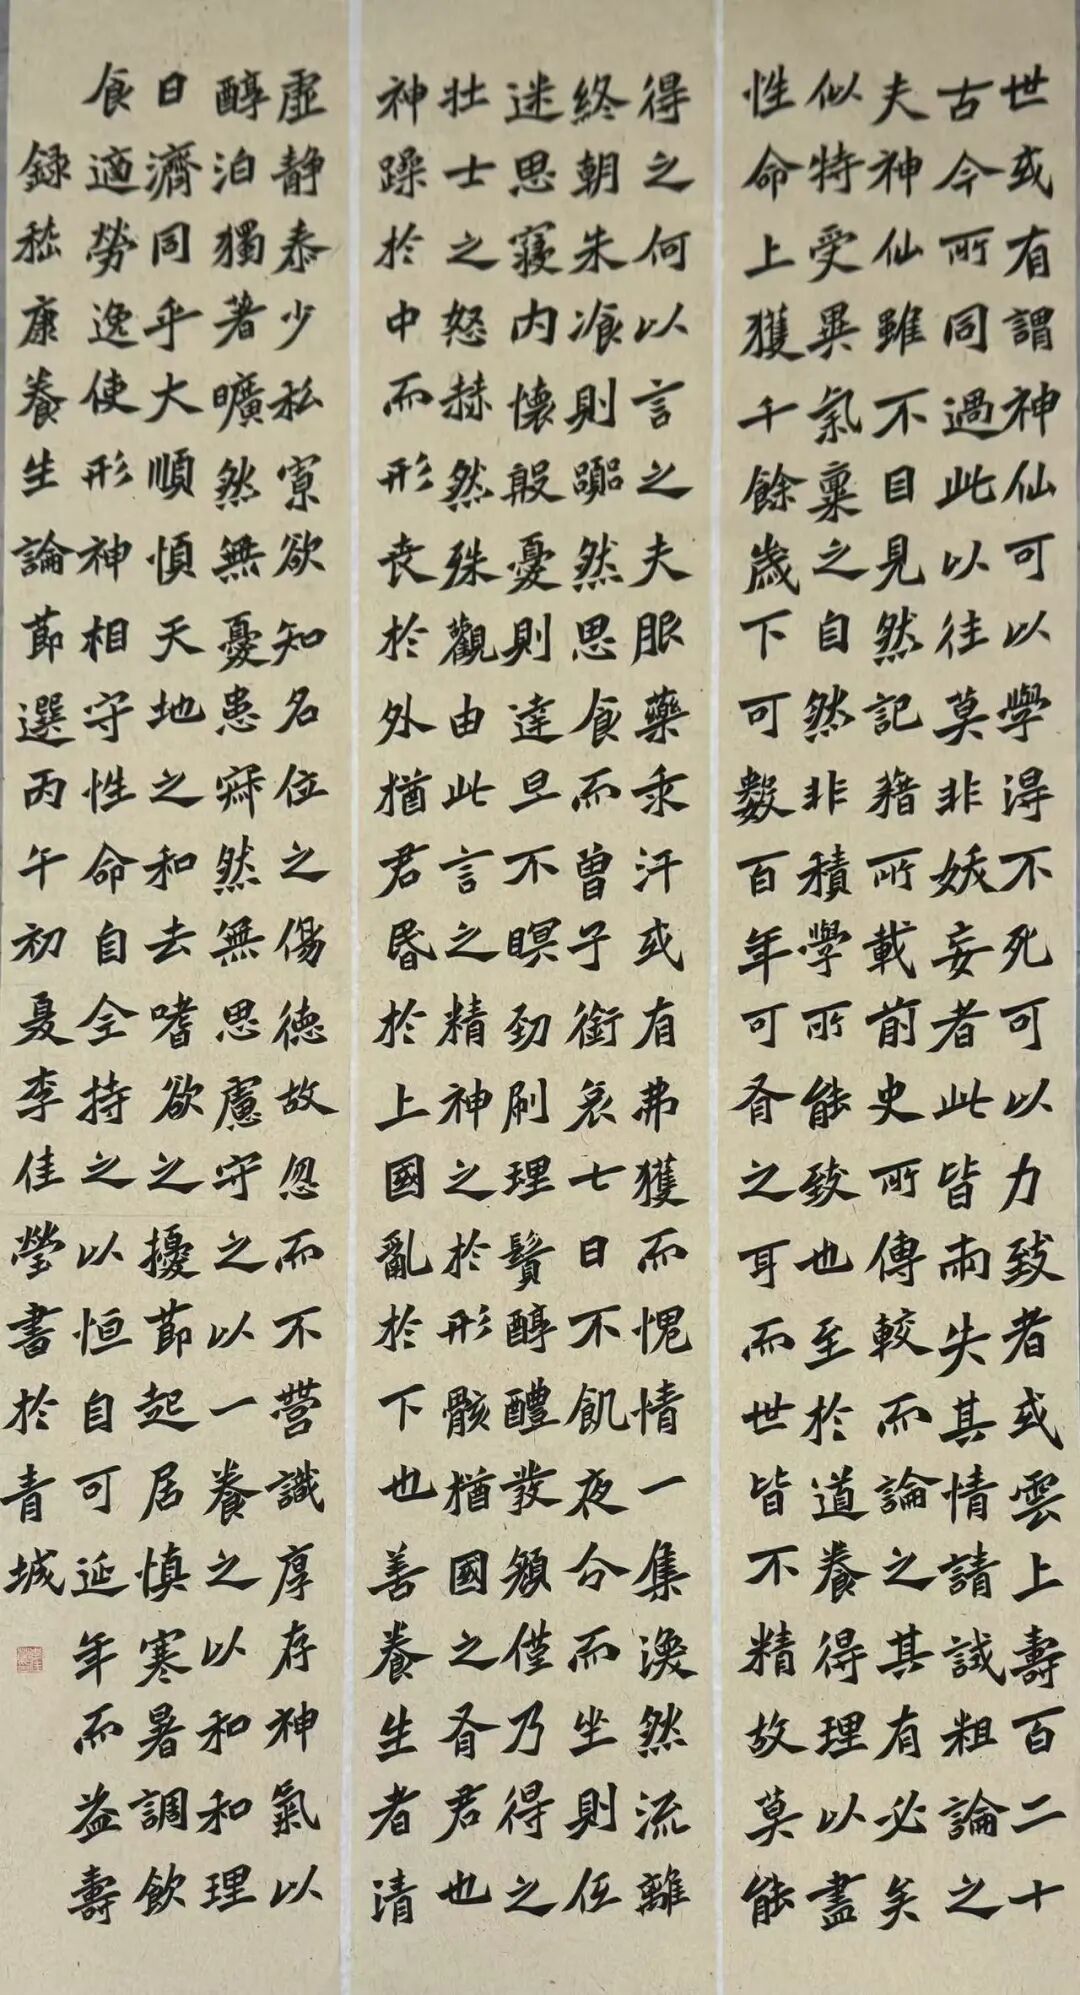 世或有謂神仙可以學得不死可以力致者或雲上壽百二十
古今所同過此以往莫非妖妄者此皆兩失其情請試粗論之
夫神仙雖不目見然記籍所載前史所傳較而論之其有必矣
似特受異氣稟之自然非積學所能致也至於道養得理以盡
性命上獲千餘歲下可數百年可有之耳而世皆不精故莫能
得之何以言之夫服藥求汗或有弗獲而愧情一集渙然流離
終朝未飡則囂然思食而曾子銜哀七日不飢夜分而坐則低
迷思寢內懷殷憂則達旦不瞑勁刷理鬢醇醴發顏僅乃得之
壯士之怒赫然殊觀由此言之精神之於形骸猶國之有君也
神躁於中而形喪於外猶君昬於上國亂於下也善養生者清
虛靜泰少私寡欲知名位之傷德故忽而不營識厚存神氣以
醇泊獨著曠然無憂患寂然無思慮守之以一養之以和和理
日濟同乎大順慎天地之和去嗜欲之擾節起居慎寒暑調飲
食適勞逸使形神相守性命自全持之以恒自可延年而益壽
錄嵇康養生論節選丙午初夏李佳瑩書於青城